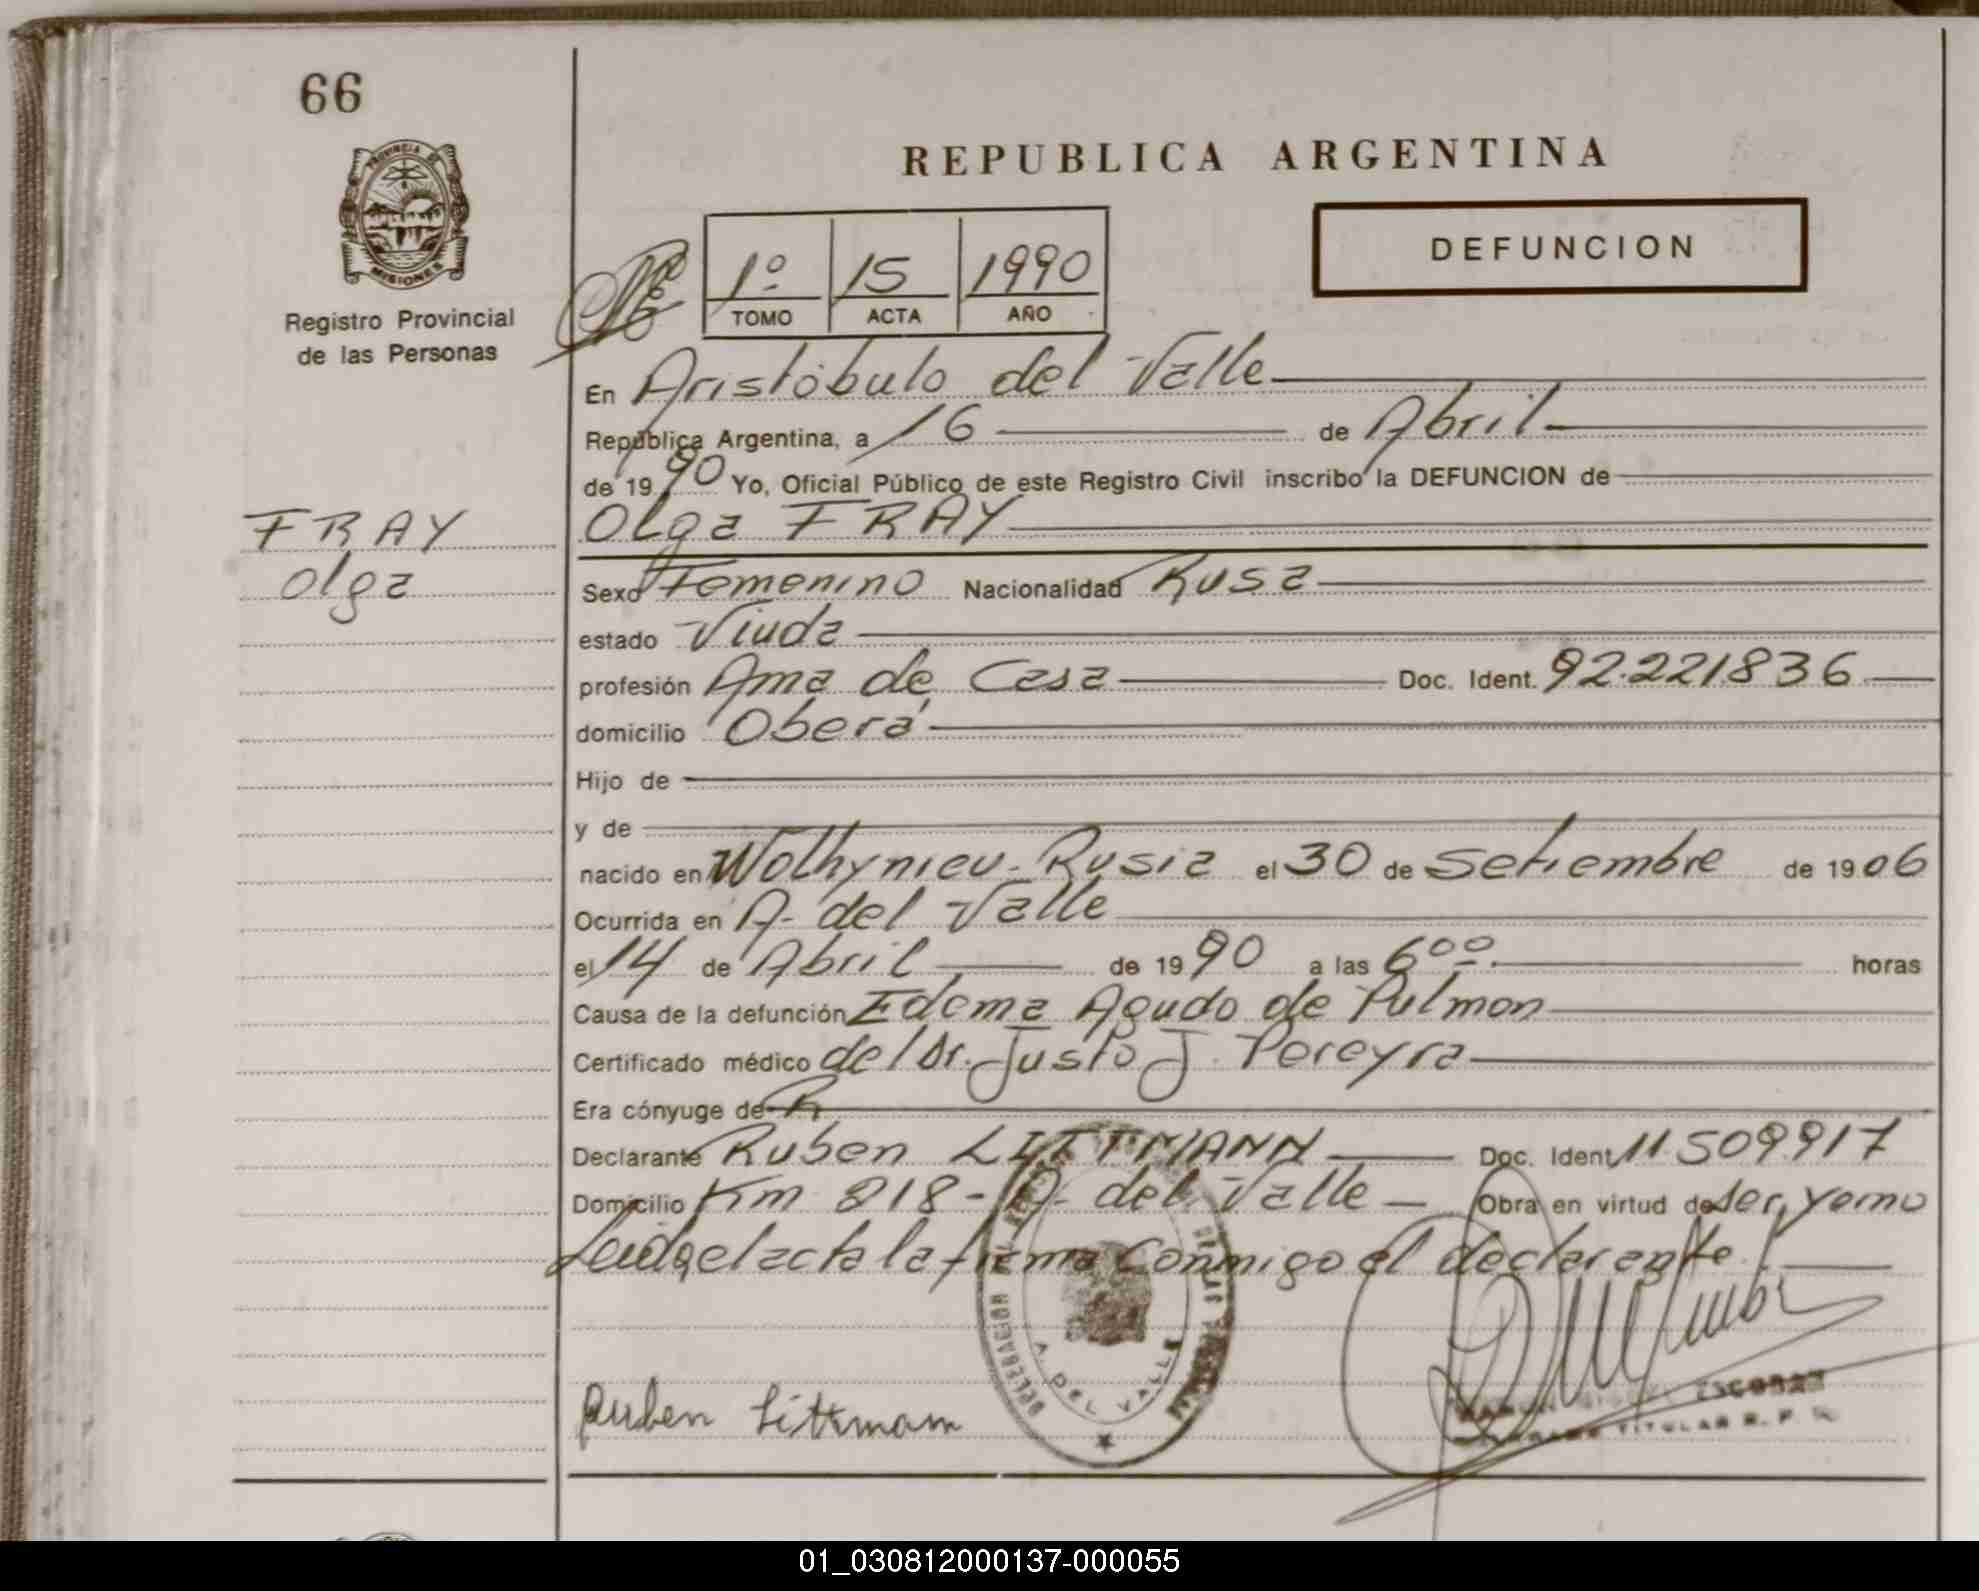 66
PROVINCIA DE
MISIONES
Registro Provincial
de las Personas
REPUBLICA ARGENTINA
DEFUNCION
1º 15 1990
TOMO ACTA AÑO
En Aristóbulo del Valle
República Argentina, a 16 de Abril
de 19 90 Yo, Oficial Público de este Registro Civil inscribo la DEFUNCION de
FRAY
Olga
Olga FRAY
Sexo Femenino Nacionalidad Rusa
estado Viuda
profesión Ama de Casa Doc. Ident. 92.221.836
domicilio Oberá
Hijo de
y de
nacido en Wolhynieu - Rusia el 30 de Setiembre de 19 06
Ocurrida en A. del Valle
el 14 de Abril de 19 90 a las 6 00 horas
Causa de la defunción Edema Agudo de Pulmon
Certificado médico del Dr. Justo J. Pereyra
Era cónyuge de
Declarante Ruben LITTMANN Doc. Ident. 11.509.917
Domicilio Km 818 - A. del Valle Obra en virtud de ser yerno
Leida el acta la firma Conmigo el declarante.
A. DEL VALLE
Ruben Littmann
ESCOBAR
TITULAR R. P.
01_030812000137-000055